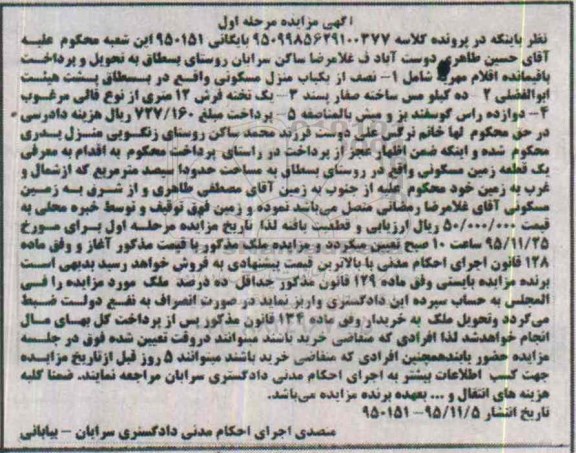 آگهی مزایده مرحله اول
نظر باینکه در پرونده کلاسه ۹۵۰۹۹۸۵۶۲۹۱۰۰۳۷۷ بایگانی ۹۵۰۱۵۱ این شعبه محکوم علیه
آقای حسین طاهری دوست آباد ف غلامرضا ساکن سرایان روستای بسطاق به تحویل و پرداخت
باقیمانده اقلام مهریه شامل ۱- نصف از یکباب منزل مسکونی واقع در بسطاق پشت هیئت
ابوالفضلی ۲- ده کیلو مس ساخته صفار پسند ۳- یک تخته فرش ۱۲ متری از نوع قالی مرغوب
۴- دوازده راس گوسفند بز و میش بالمناصفه ۵- پرداخت مبلغ ۷۲۷/۱۶۰ ریال هزینه دادرسی
در حق محکوم لها خانم نرگس علی دوست فرزند محمد ساکن روستای زنگویی منزل پدری
محکوم شده و اینکه ضمن اظهار عجز از پرداخت در راستای پرداخت محکوم به اقدام به معرفی
یک قطعه زمین مسکونی واقع در روستای بسطاق به مساحت حدودا سیصد مترمربع که ازشمال و
غرب به زمین خود محکوم علیه از جنوب به زمین آقای مصطفی طاهری و از شرق به زمین
مسکونی آقای غلامرضا رمضانی متصل می‌باشد نموده و زمین فوق توقیف و توسط خبره محلی به
قیمت ۵۰/۰۰۰/۰۰۰ ریال ارزیابی و قطعیت یافته لذا تاریخ مزایده مرحله اول برای مورخ
۹۵/۱۱/۲۵ ساعت ۱۰ صبح تعیین میگردد و مزایده ملک مذکور با قیمت مذکور آغاز و وفق ماده
۱۲۸ قانون اجرای احکام مدنی با بالاترین قیمت پیشنهادی به فروش خواهد رسید بدیهی است
برنده مزایده بایستی وفق ماده ۱۲۹ قانون مذکور حداقل ده درصد ملک مورد مزایده را فی
المجلس به حساب سپرده این دادگستری واریز نماید در صورت انصراف به نفع دولت ضبط
می‌گردد وتحویل ملک به خریدار وفق ماده ۱۳۴ قانون مذکور پس از پرداخت کل بهای مال
انجام خواهدشد لذا افرادی که متقاضی خرید باشند میتوانند دروقت تعیین شده فوق در جلسه
مزایده حضور یابندهمچنین افرادی که متقاضی خرید باشند میتوانند ۵ روز قبل ازتاریخ مزایده
جهت کسب اطلاعات بیشتر به اجرای احکام مدنی دادگستری سرایان مراجعه نمایند. ضمنا کلیه
هزینه های انتقال و ... بعهده برنده مزایده می‌باشد.
تاریخ انتشار ۹۵/۱۱/۵- ۹۵۰۱۵۱
متصدی اجرای احکام مدنی دادگستری سرایان - بیابانی